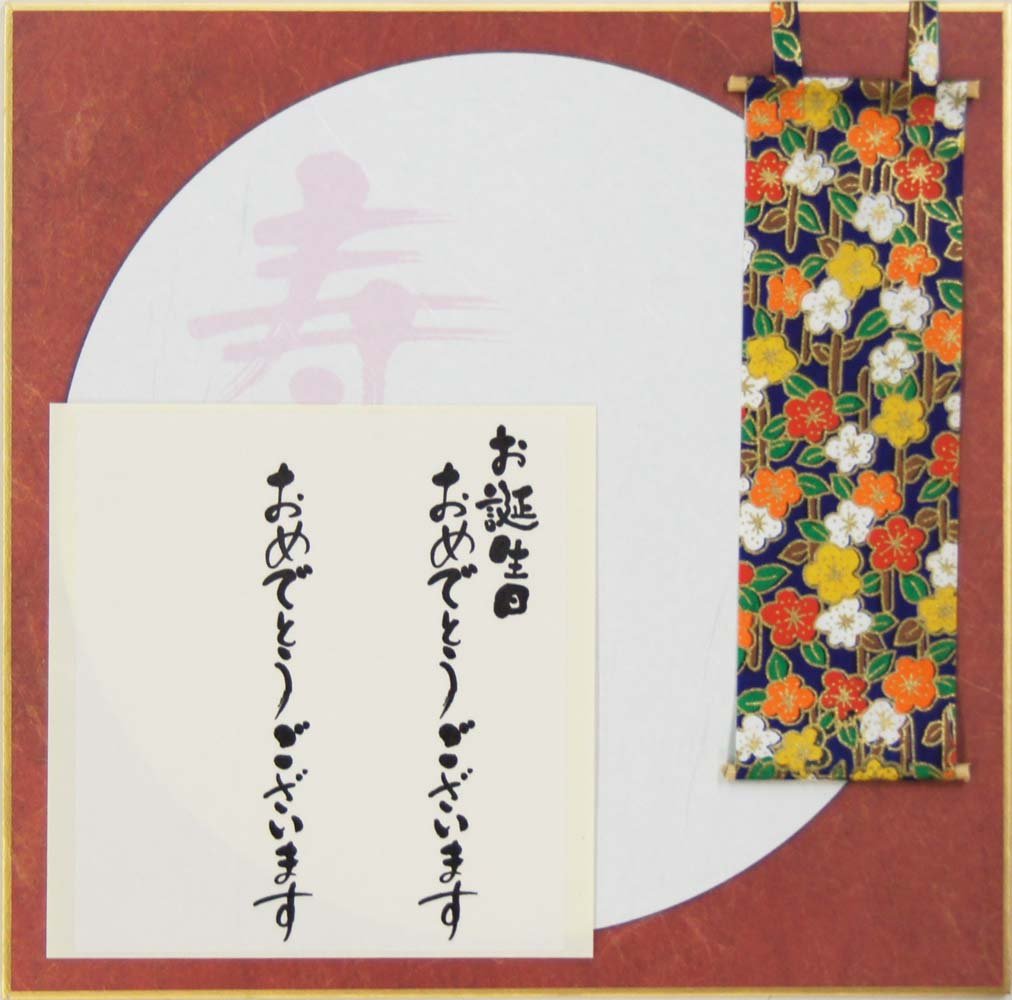 寿
お誕生日
おめでとうございます
おめでとうございます